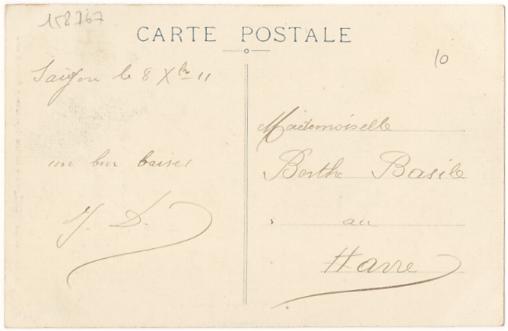 158767
CARTE POSTALE
10
Saigon le 8 Xbre 11
un bon baiser
J. D.
Mademoiselle
Berthe Basile
au
Havre